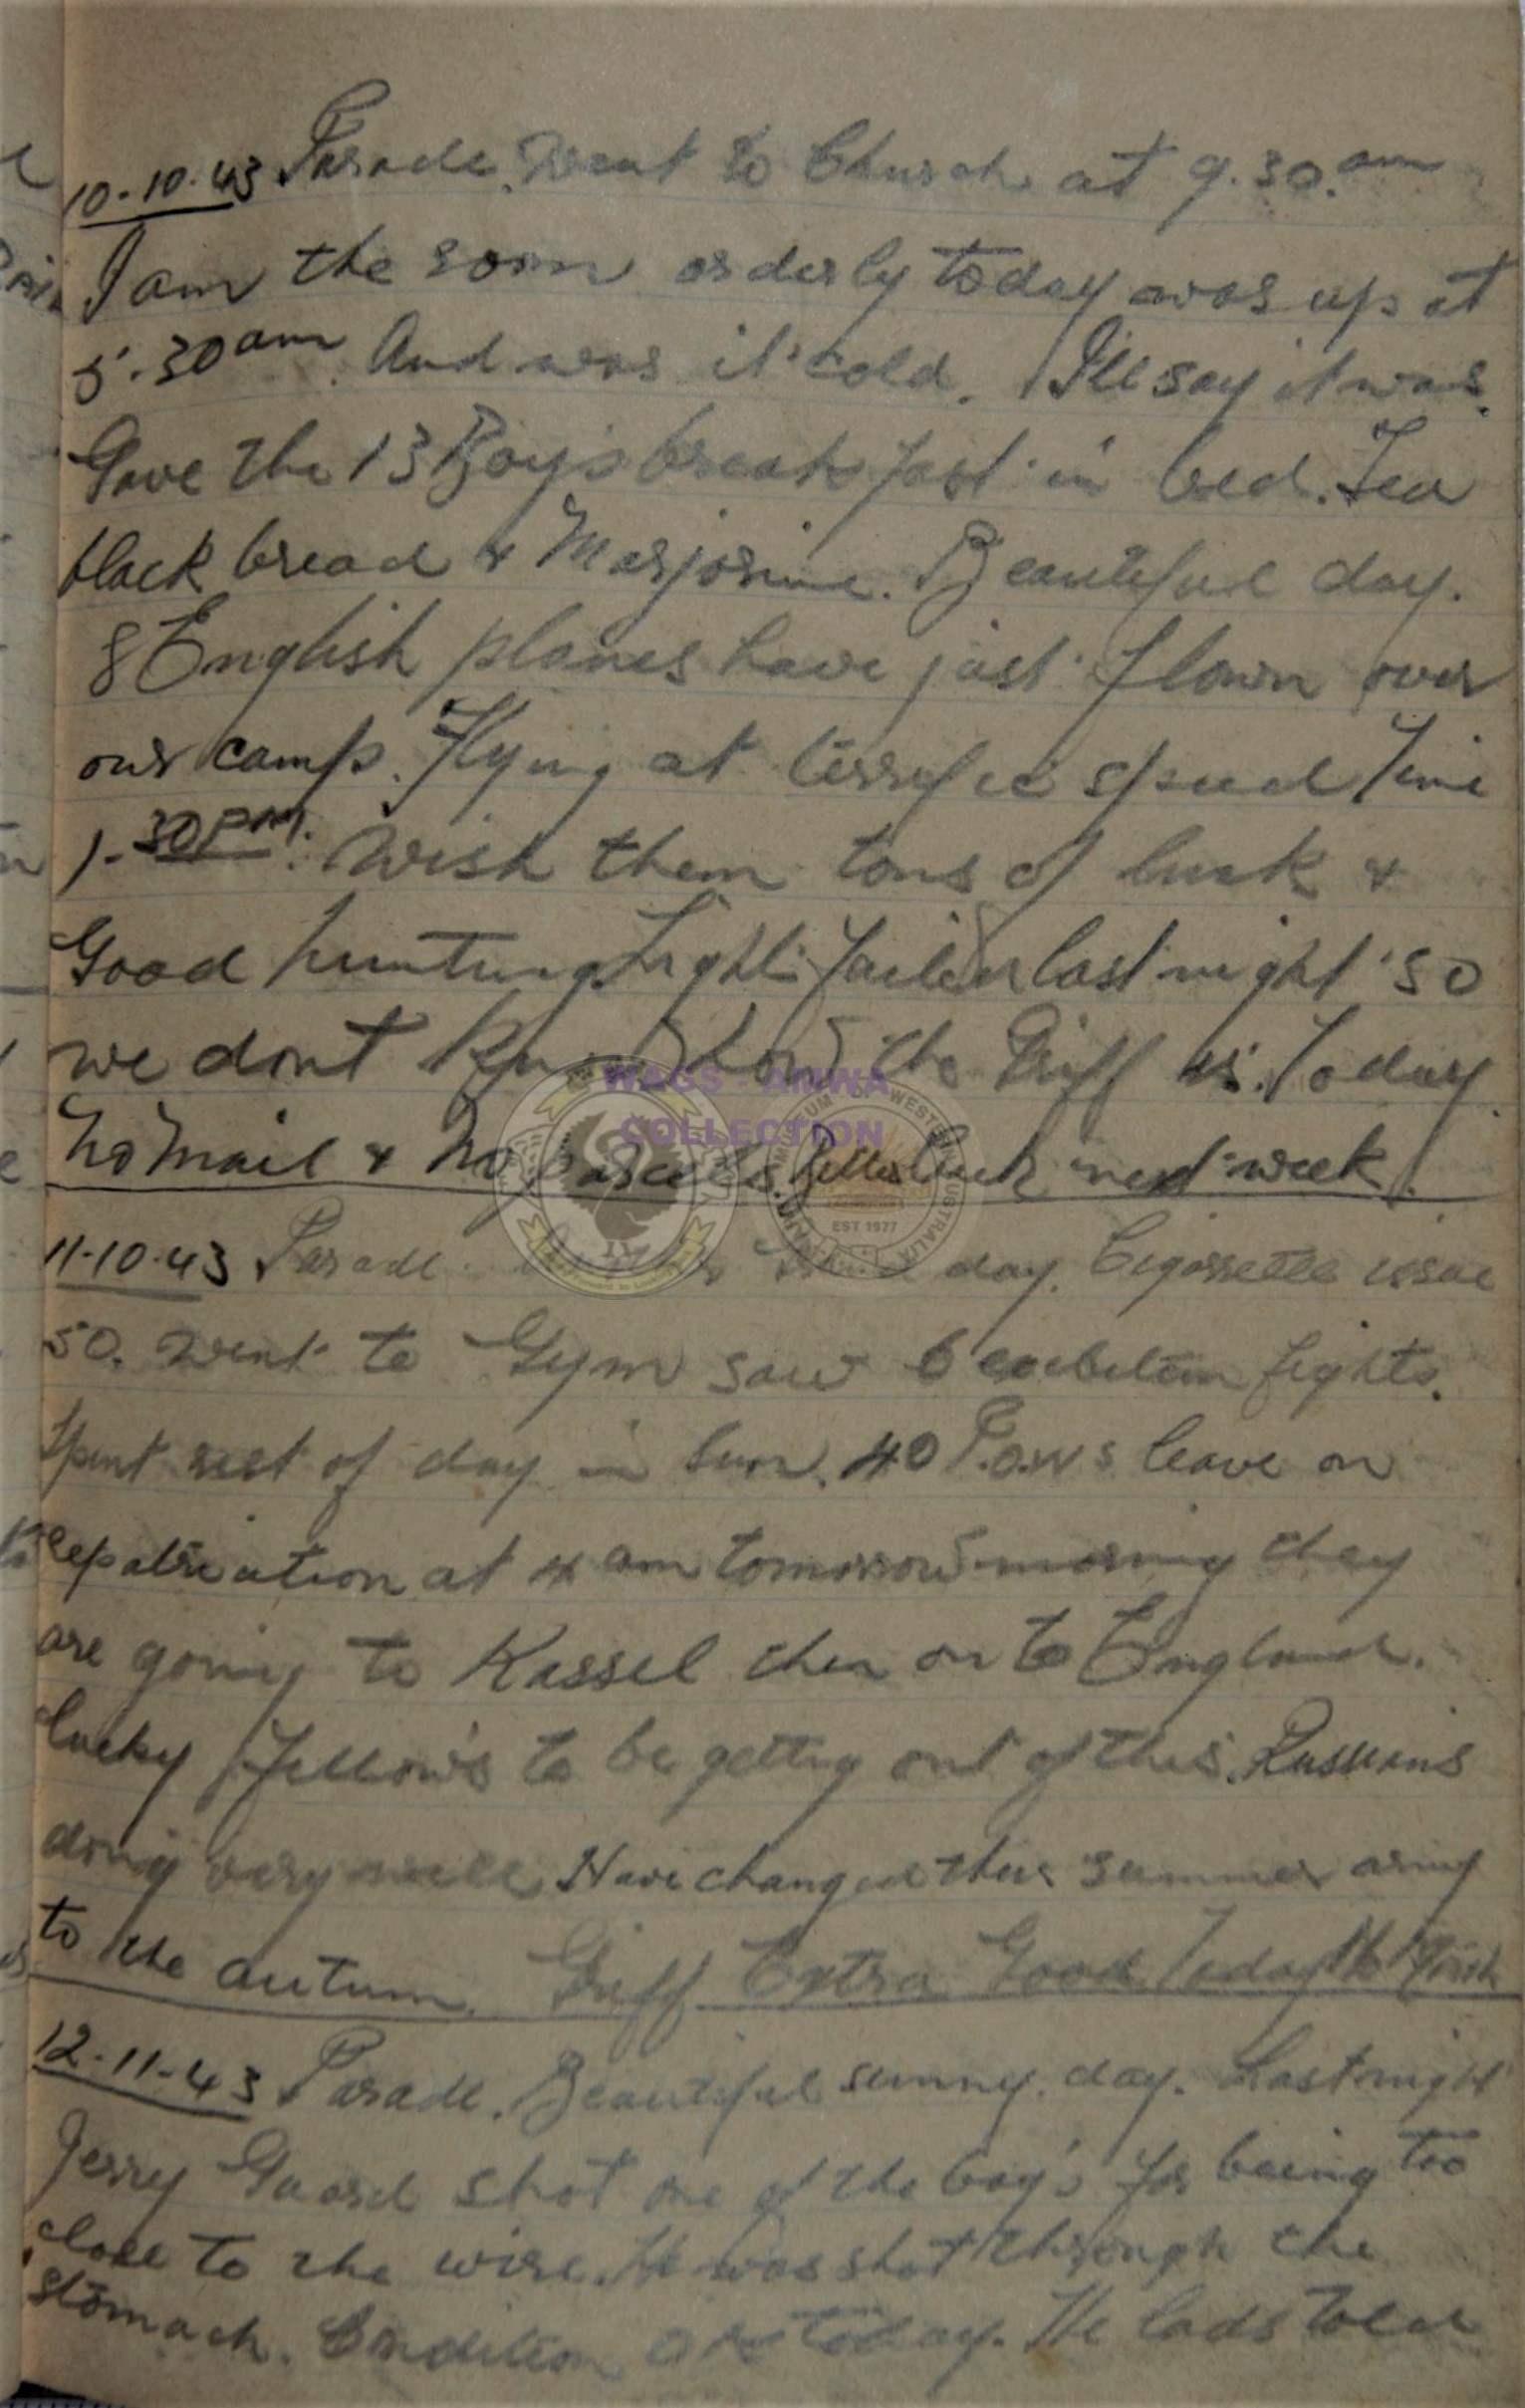 10-10-43 Parade. Went to Church at 9.30.am
I am the room orderly today was up at
5.30am. And was it cold. I'll say it was.
Gave the 13 Boys breakfast in bed. Tea
black bread & Marjorine. Beautiful day.
8 English planes have just flown over
our camp. Flying at terrific speed Time
1-30PM. Wish them tons of luck &
Good hunting. Light failed last night so
we dont know how the Griff is. Today
No Mail & No parcels. Better luck next week.
11-10-43 Parade. day. Cigarette issue
50. Went to Gym saw 6 exebition fights.
Spent rest of day in Sun. 40 P.O.W's leave on
repatriation at 4 am tomorrow morning they
are going to Kassel then on to England.
lucky fellow's to be getting out of this. Russians
doing very well Have changed their summer army
to the autumn. Griff Extra Good Today
12-11-43 Parade. Beautiful sunny. day. Last night
Jerry Guard shot one of the boy's for being too
close to the wire. He was shot through the
stomach. Condition OK today. The lads told
WAGS - AMWA
COLLECTION
MUSEUM OF WESTERN AUSTRALIA
EST 1977